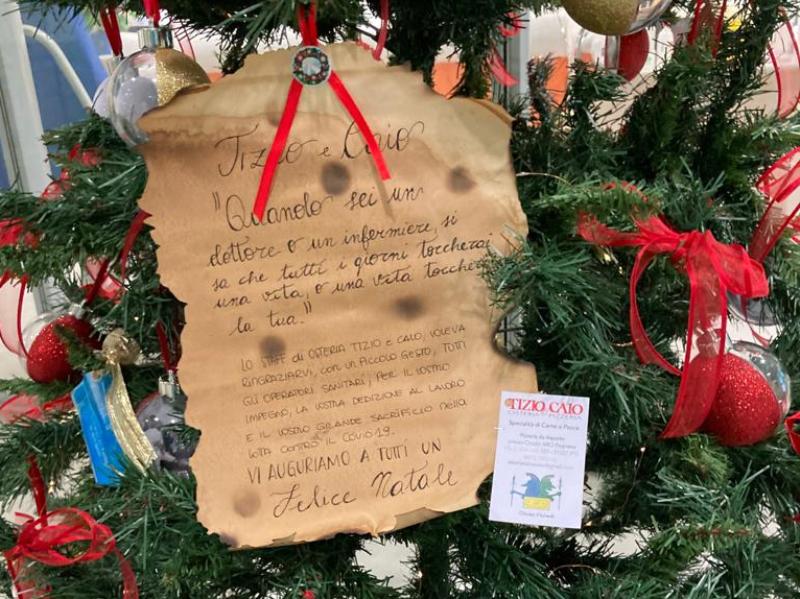 Tizio e Caio
"Quando sei un
dottore o un infermiere, si
sa che tutti i giorni toccherai
una vita, o una vita toccherà
la tua."
LO STAFF di OSTERIA TIZIO e CAIO, VOLEVA
RINGRAZIARVI, CON UN PICCOLO GESTO, TUTTI
GLI OPERATORI SANITARI, PER IL VOSTRO
IMPEGNO, LA VOSTRA DEDIZIONE AL LAVORO
E IL VOSTRO GRANDE SACRIFICIO nella
lotta CONTRO IL COVID-19.
VI AUGURIAMO A TUTTI UN
Felice Natale
TIZIO CAIO
OSTERIA PIZZERIA
Specialità di Carne e Pesce
Pizzeria da Asporto